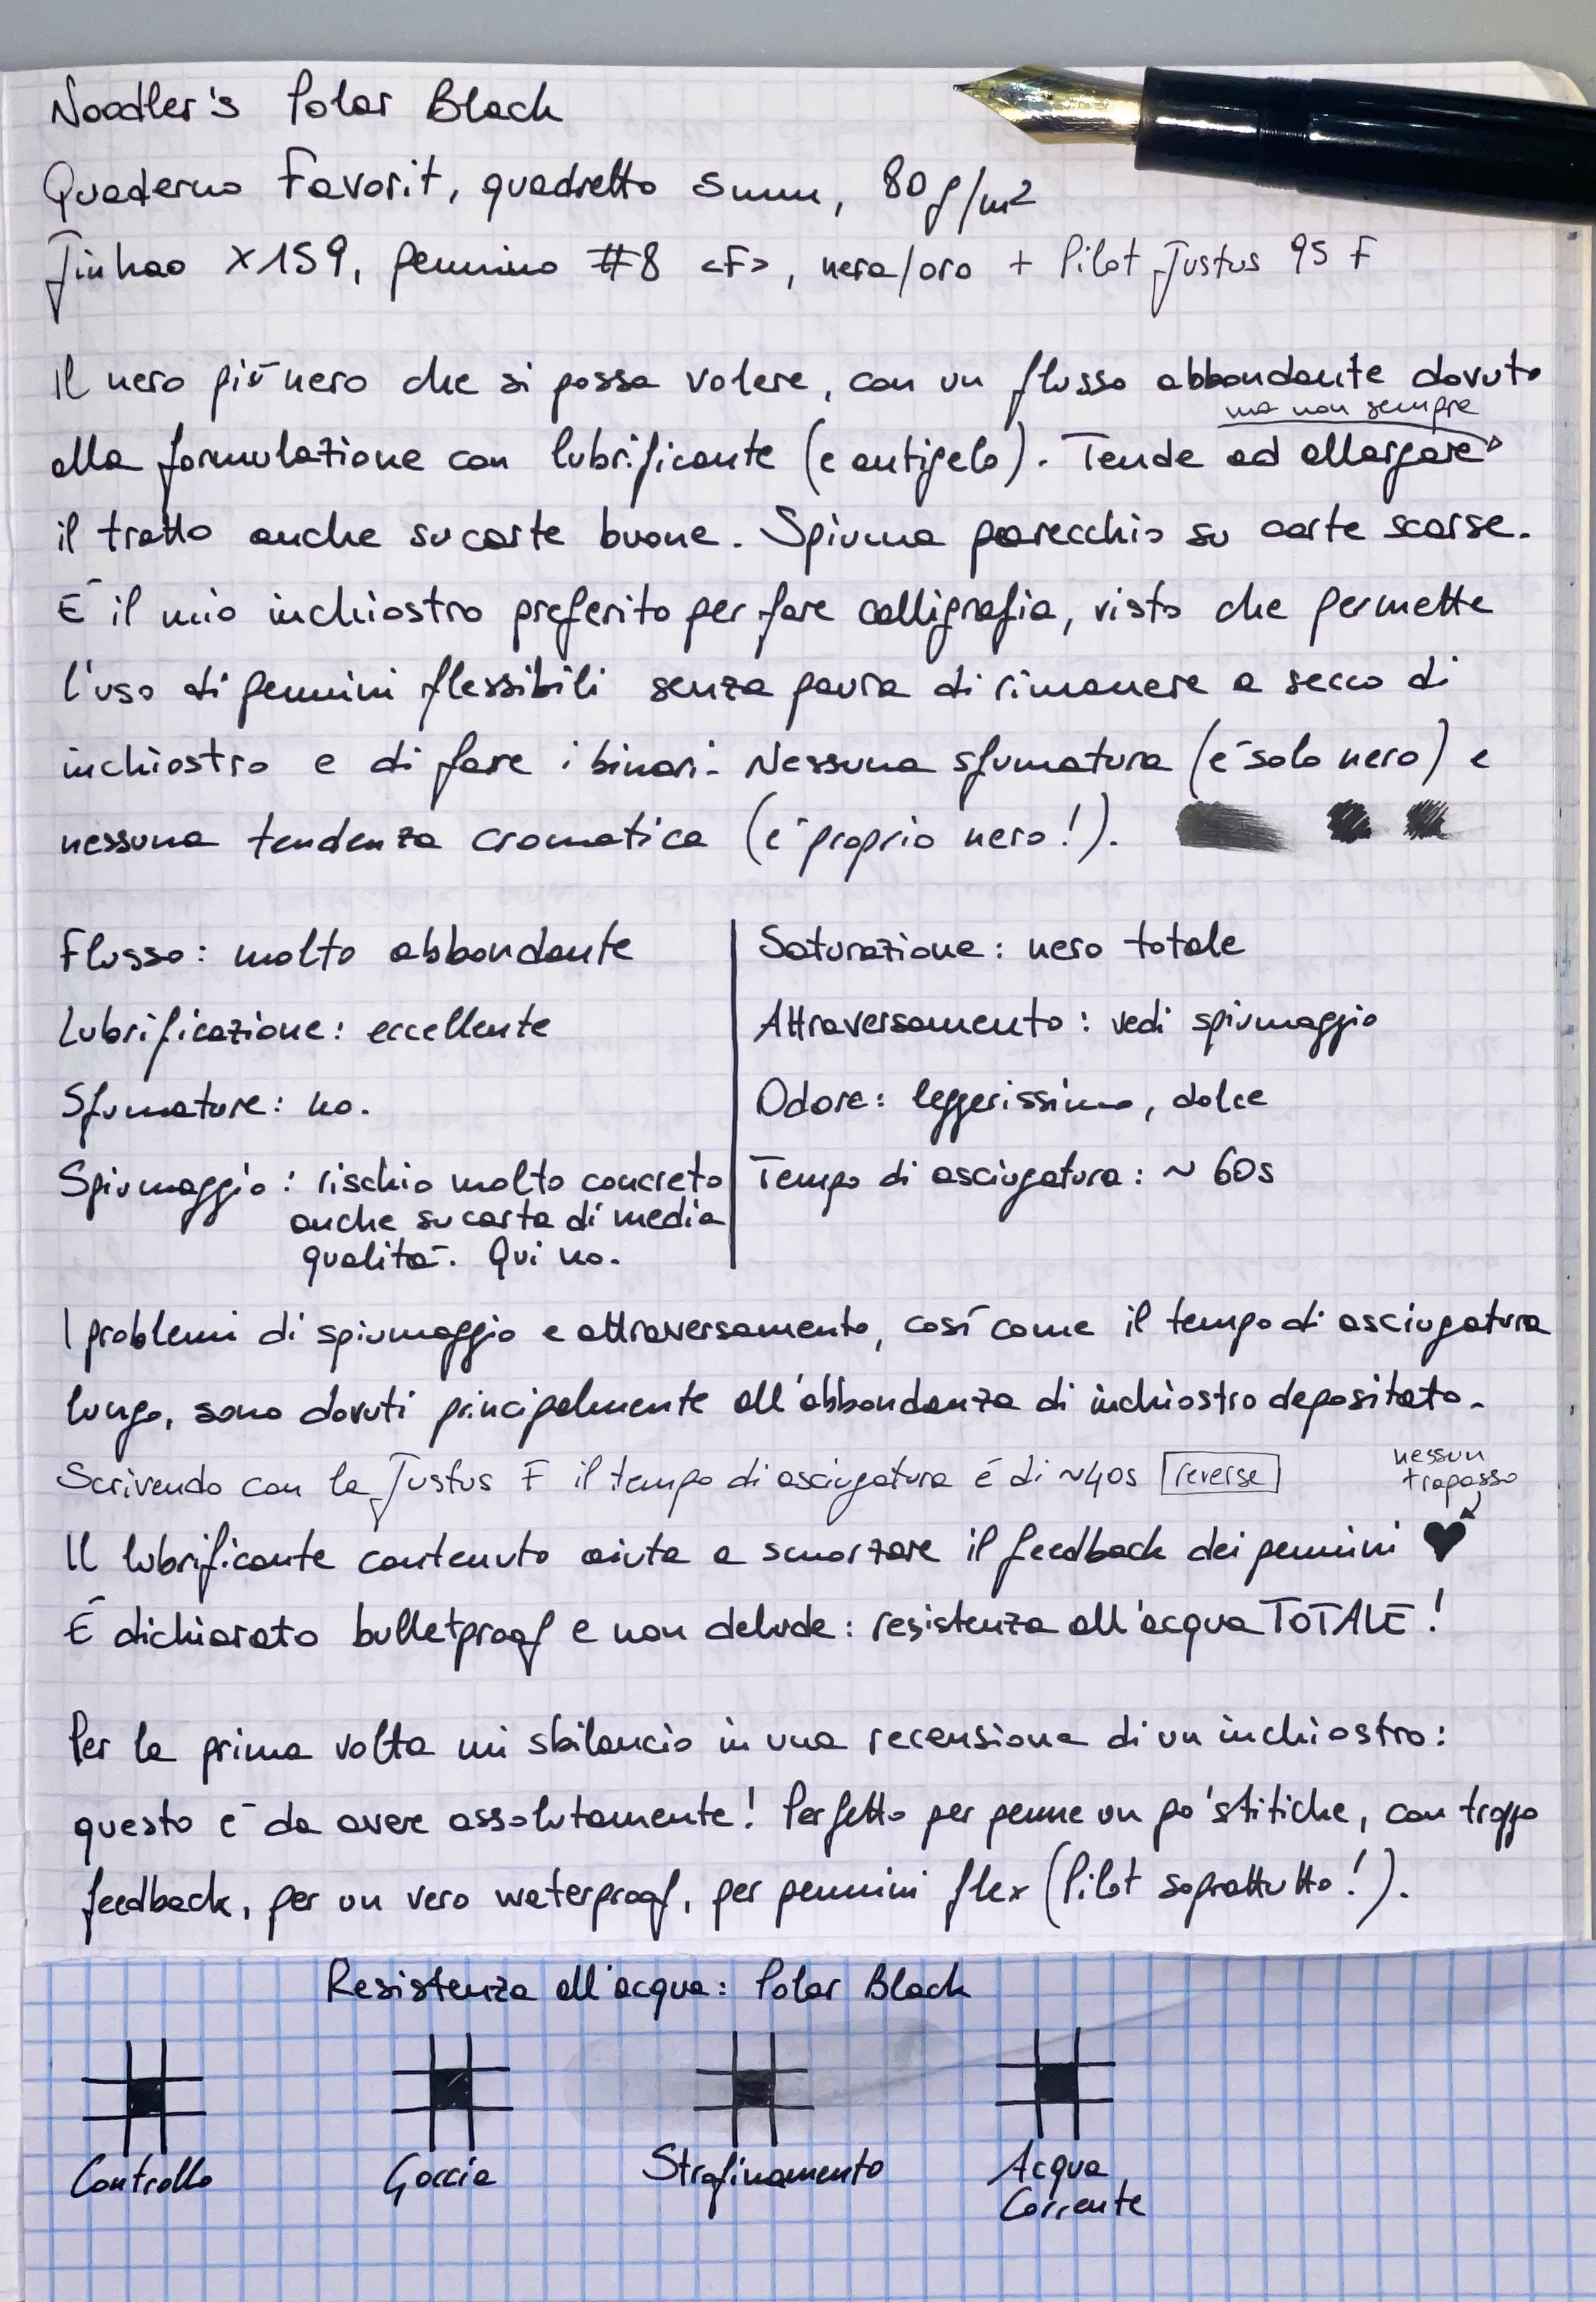 Noodler's Polar Black
Quaderno Favorit, quadretto 5mm, 80g/m²
Jinhao X159, pennino #8 <F>, nera/oro + Pilot Justus 95 F
Il nero più nero che si possa volere, con un flusso abbondante dovuto
alla formulazione con lubrificante (e antigelo). Tende ad allargare
ma non sempre
il tratto anche su carte buone. Spiuma parecchio su carte scarse.
È il mio inchiostro preferito per fare calligrafia, visto che permette
l'uso di pennini flessibili senza paura di rimanere a secco di
inchiostro e di fare i binari. Nessuna sfumatura (è solo nero) e
nessuna tendenza cromatica (è proprio nero!).
Flusso: molto abbondante
Lubrificazione: eccellente
Sfumature: no.
Spiumaggio: rischio molto concreto
anche su carta di media
qualità. Qui no.
Saturazione: nero totale
Attraversamento: vedi spiumaggio
Odore: leggerissimo, dolce
Tempo di asciugatura: ~ 60s
I problemi di spiumaggio e attraversamento, così come il tempo di asciugatura
lungo, sono dovuti principalmente all'abbondanza di inchiostro depositato.
Scrivendo con la Justus F il tempo di asciugatura è di ~40s reverse
nessun
trapasso
Il lubrificante contenuto aiuta a smorzare il feedback dei pennini ♥
È dichiarato bulletproof e non delude: resistenza all'acqua TOTALE!
Per la prima volta mi sbilancio in una recensione di un inchiostro:
questo è da avere assolutamente! Perfetto per penne un po' stitiche, con troppo
feedback, per un vero waterproof, per pennini flex (Pilot soprattutto!).
Resistenza all'acqua: Polar Black
Controllo
Goccia
Strofinamento
Acqua
Corrente